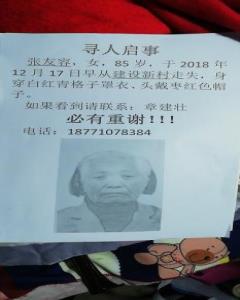 寻人启事
张友容，女，85 岁，于 2018 年
12 月 17 日早从建设新村走失，身
穿白红青格子罩衣、头戴枣红色帽
子。
如果看到请联系：章建壮
必有重谢!!!
电话：18771078384